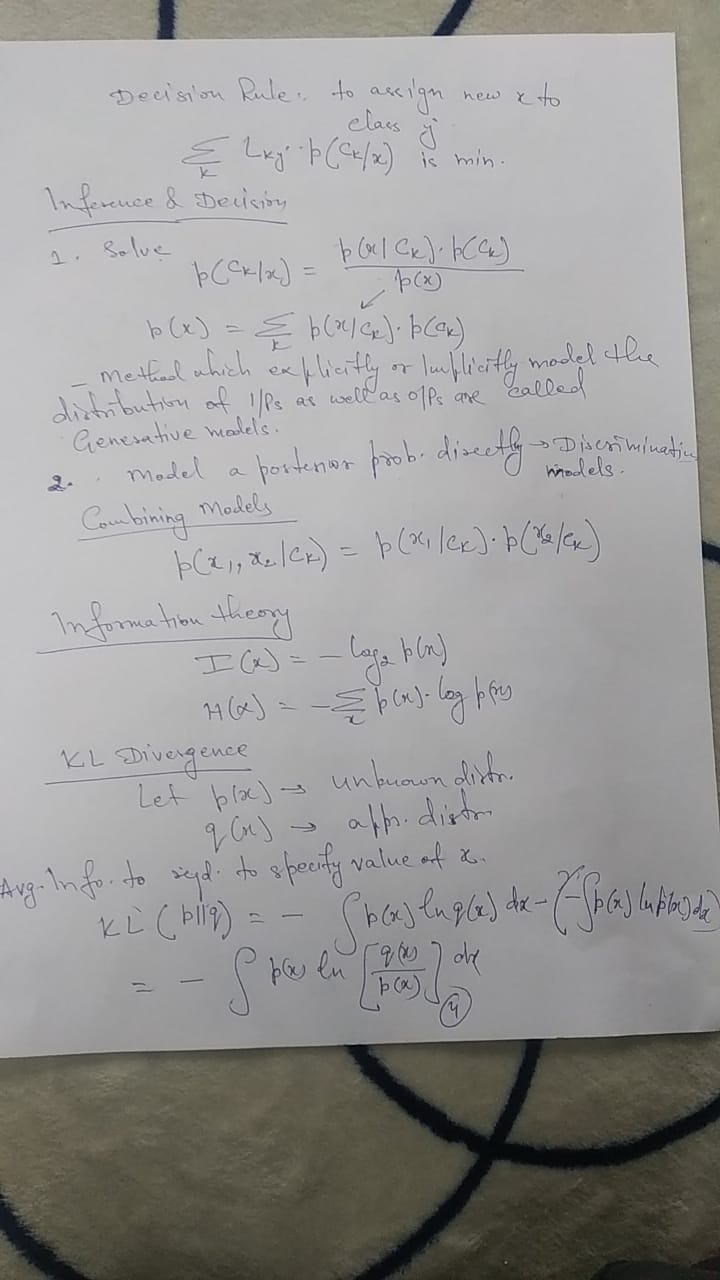 Decision Rule: to assign new x to
class j
Σ_k L_kj · p(C_k/x) is min.
Inference & Decision
1. Solve
p(C_k/x) = p(x/C_k)·p(C_k) / p(x)
p(x) = Σ_k p(x/C_k)·p(C_k)
- Method which explicitly or Implicitly model the
distribution of I/Ps as well as o/Ps are called
Generative models.
2. Model a posterior prob. directly → Discriminative
models.
Combining Models
p(x_1, x_2/C_k) = p(x_1/C_k)·p(x_2/C_k)
Information theory
I(x) = - log_2 p(x)
H(x) = - Σ_x p(x)·log p(x)
KL Divergence
Let p(x) → unknown distr.
q(x) → app. distr
Avg. Info. to reqd. to specify value of x.
KL(p||q) = - ∫p(x) ln q(x) dx - (-∫p(x) ln p(x) dx)
= - ∫ p(x) ln [q(x)/p(x)] dx
4